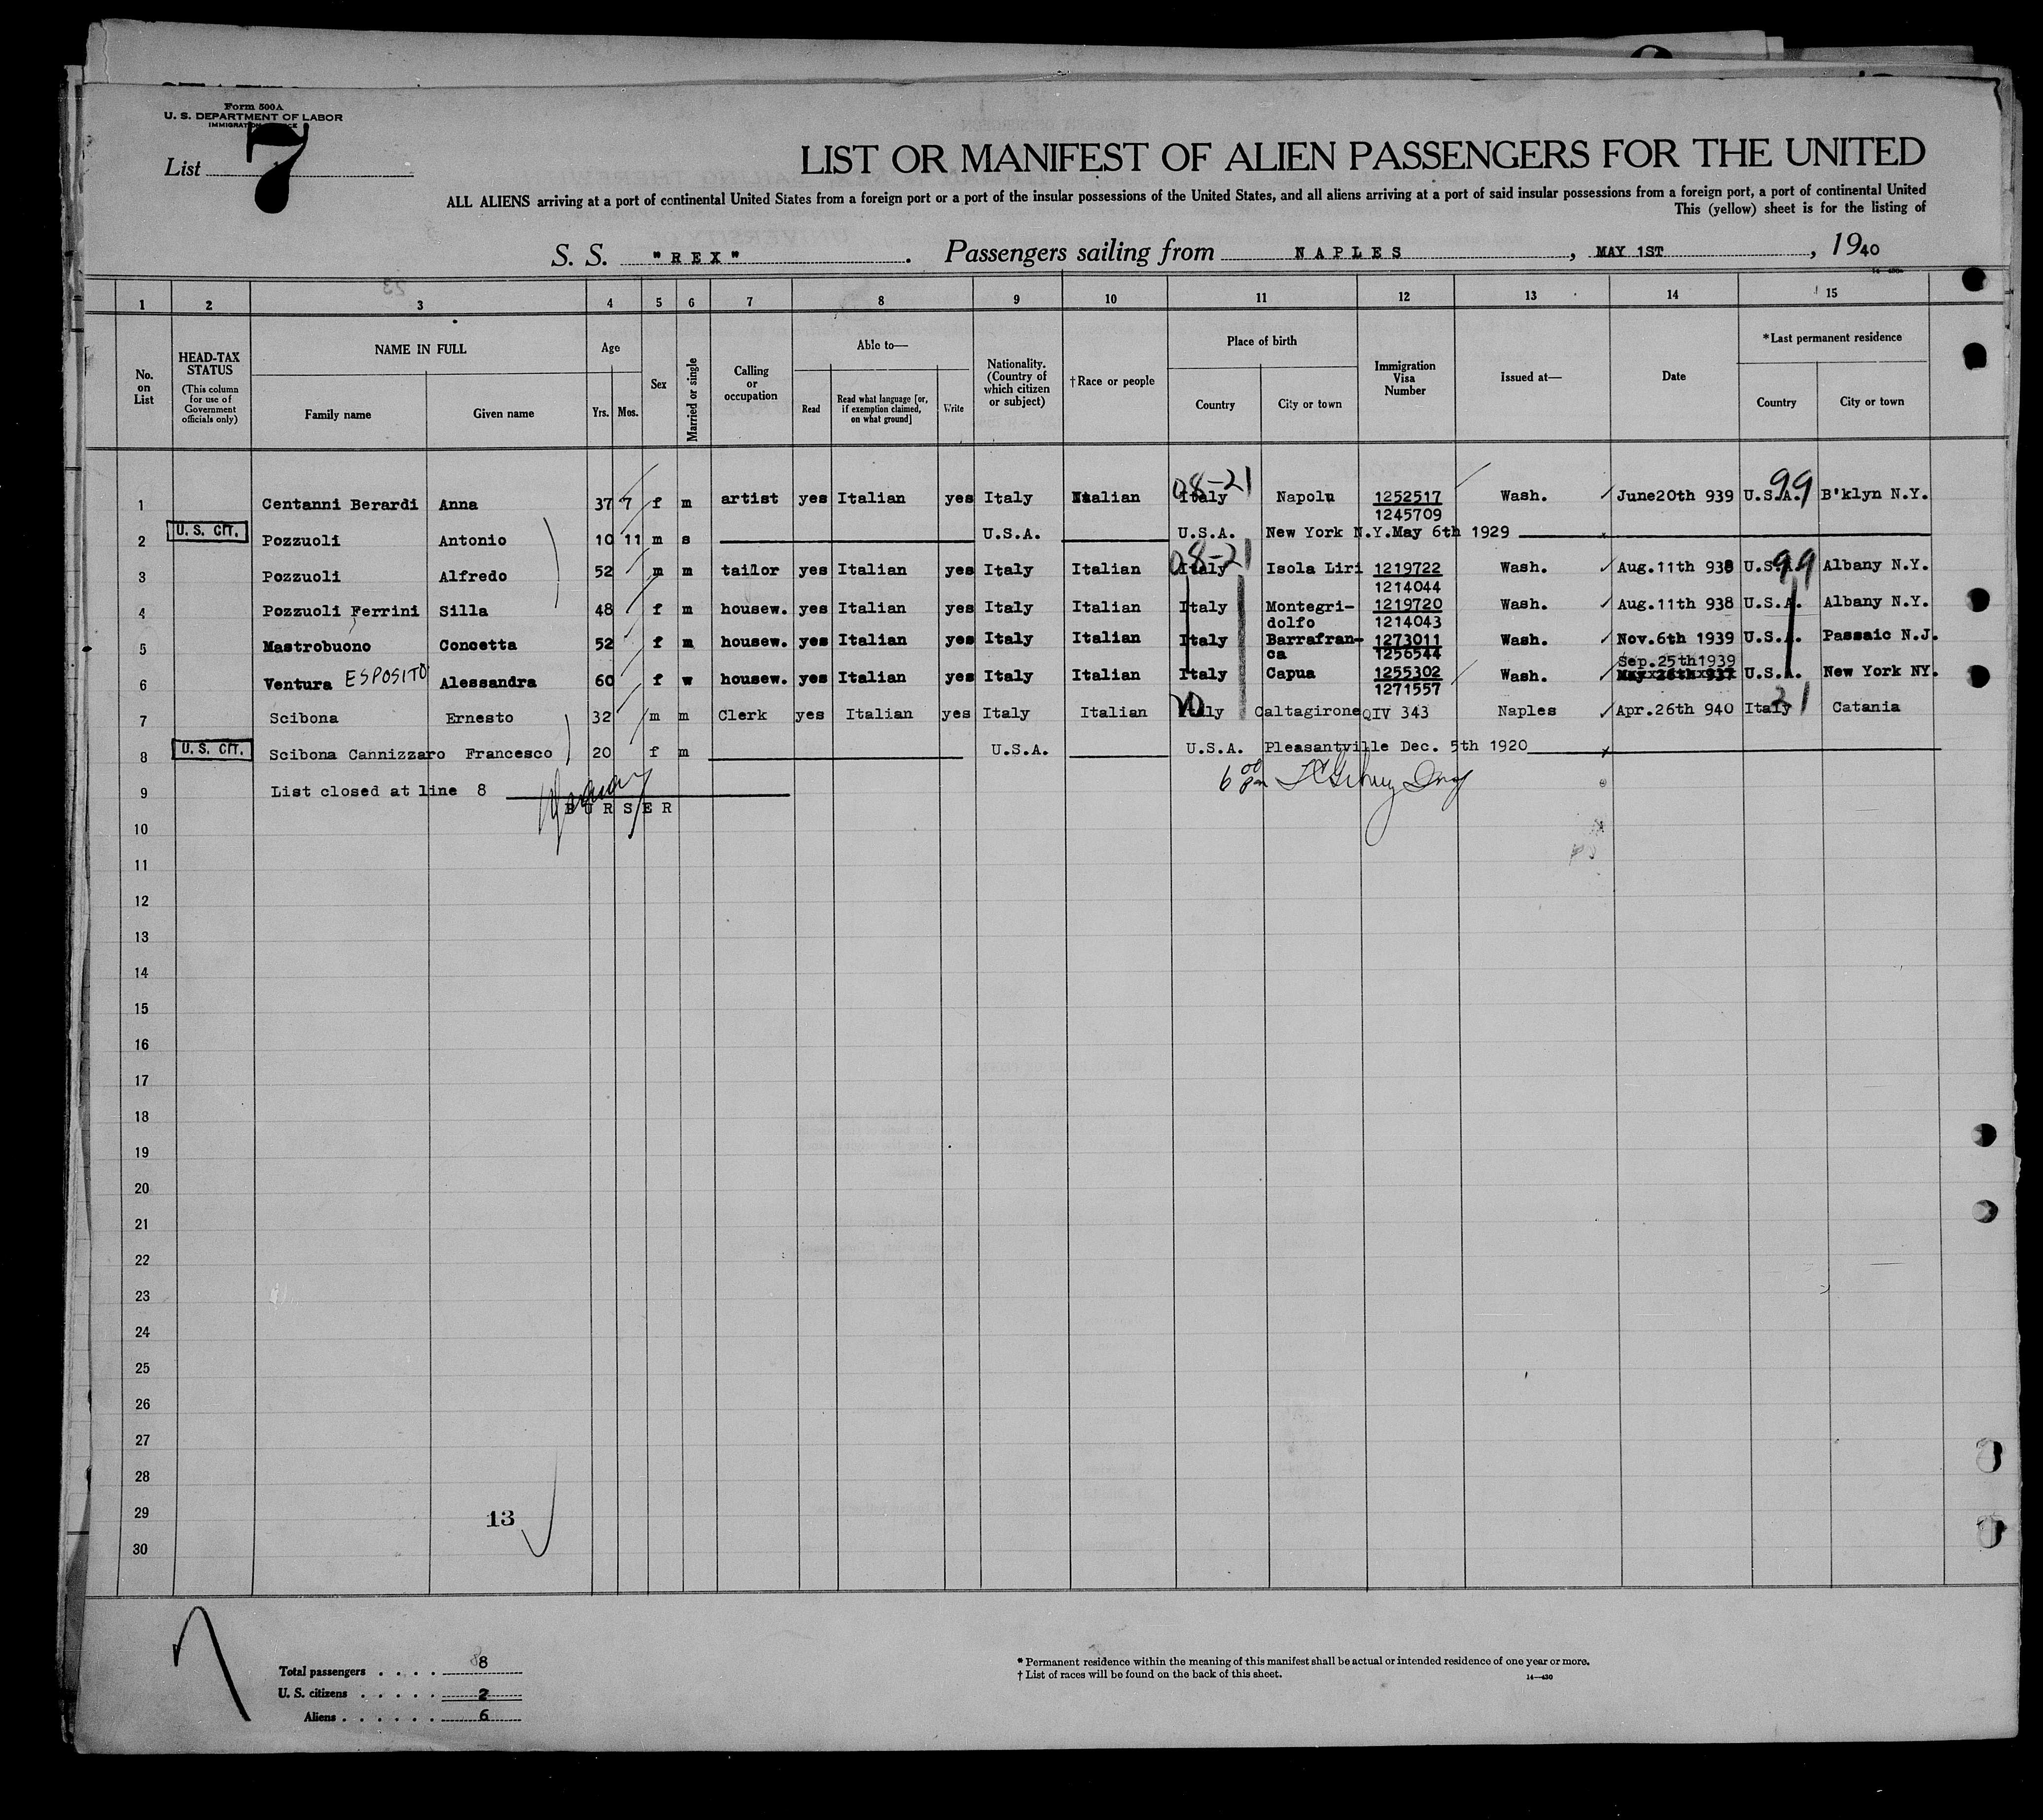 Form 500A
U. S. DEPARTMENT OF LABOR
List 7
LIST OR MANIFEST OF ALIEN PASSENGERS FOR THE UNITED
ALL ALIENS arriving at a port of continental United States from a foreign port or a port of the insular possessions of the United States, and all aliens arriving at a port of said insular possessions from a foreign port, a port of continental United
This (yellow) sheet is for the listing of
S. S. "REX". Passengers sailing from NAPLES, MAY 1ST, 1940
1 2 3 4 5 6 7 8 9 10 11 12 13 14 15
No. on List
HEAD-TAX STATUS (This column for use of Government officials only)
NAME IN FULL Family name Given name
Age Yrs. Mos.
Sex
Married or single
Calling or occupation
Able to— Read Read what language [or, if exemption claimed, on what ground] Write
Nationality. (Country of which citizen or subject)
†Race or people
Place of birth Country City or town
Immigration Visa Number
Issued at—
Date
*Last permanent residence Country City or town
1 Centanni Berardi Anna 37 7 f m artist yes Italian yes Italy Italian Italy 08-21 Napolu 1252517 1245709 Wash. June20th 939 U.S.A. 99 B'klyn N.Y.
2 U. S. CIT. Pozzuoli Antonio 10 11 m s U.S.A. U.S.A. New York N.Y.May 6th 1929
3 Pozzuoli Alfredo 52 m m tailor yes Italian yes Italy Italian Italy 08-21 Isola Liri 1219722 1214044 Wash. Aug.11th 938 U.S.A. 99 Albany N.Y.
4 Pozzuoli Ferrini Silla 48 f m housew. yes Italian yes Italy Italian Italy Montegri-dolfo 1219720 1214043 Wash. Aug.11th 938 U.S.A. Albany N.Y.
5 Mastrobuono Concetta 52 f m housew. yes Italian yes Italy Italian Italy Barrafran-ca 1273011 1256544 Wash. Nov.6th 1939 U.S.A. Passaic N.J.
6 Ventura ESPOSITO Alessandra 60 f w housew. yes Italian yes Italy Italian Italy Capua 1255302 1271557 Wash. Sep.25th1939 U.S.A. New York NY.
7 Scibona Ernesto 32 m m Clerk yes Italian yes Italy Italian Italy Caltagirone QIV 343 Naples Apr.26th 940 Italy 21 Catania
8 U. S. CIT. Scibona Cannizzaro Francesco 20 f m U.S.A. U.S.A. Pleasantville Dec. 5th 1920
9 List closed at line 8
BURSER
10
11
12
13
14
15
16
17
18
19
20
21
22
23
24
25
26
27
28
29
13
30
Total passengers . . . . 8
U. S. citizens . . . . . 2
Aliens . . . . . . 6
* Permanent residence within the meaning of this manifest shall be actual or intended residence of one year or more.
† List of races will be found on the back of this sheet. 14—430